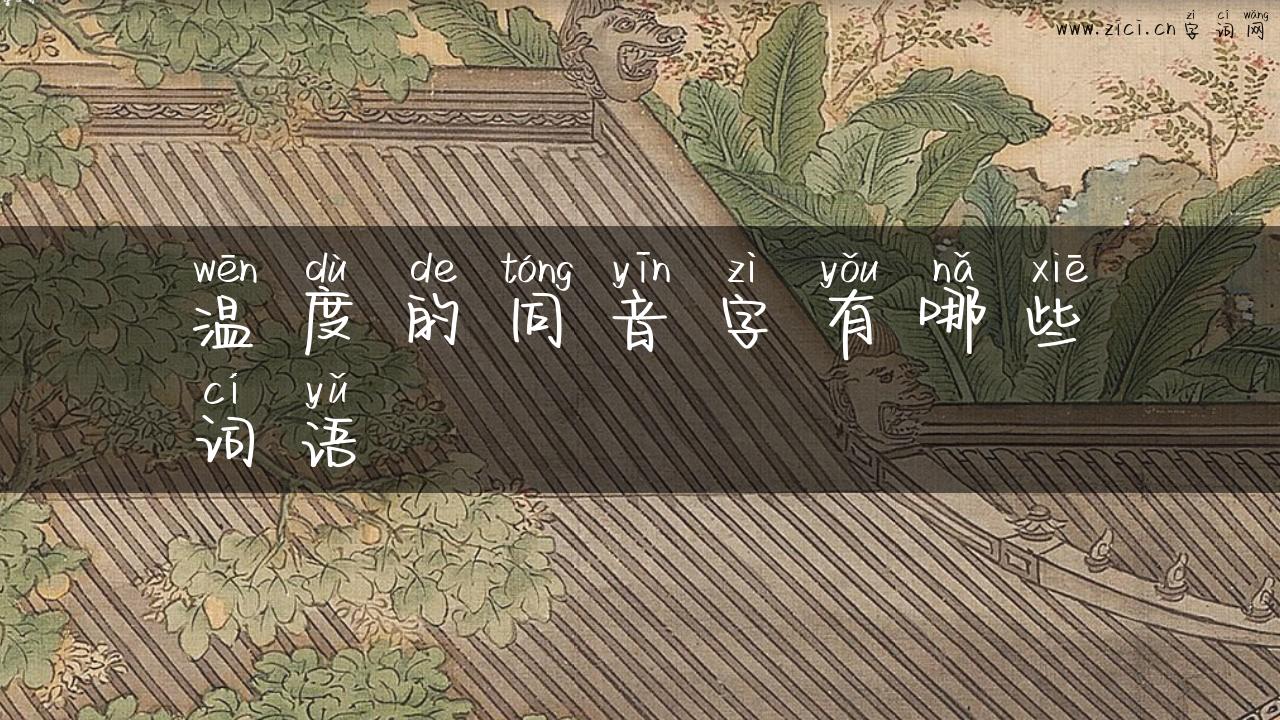 zì cí wǎng
www.zici.cn 字 词 网
wēn dù de tóng yīn zì yǒu nǎ xiē
温 度 的 同 音 字 有 哪 些
cí yǔ
词 语